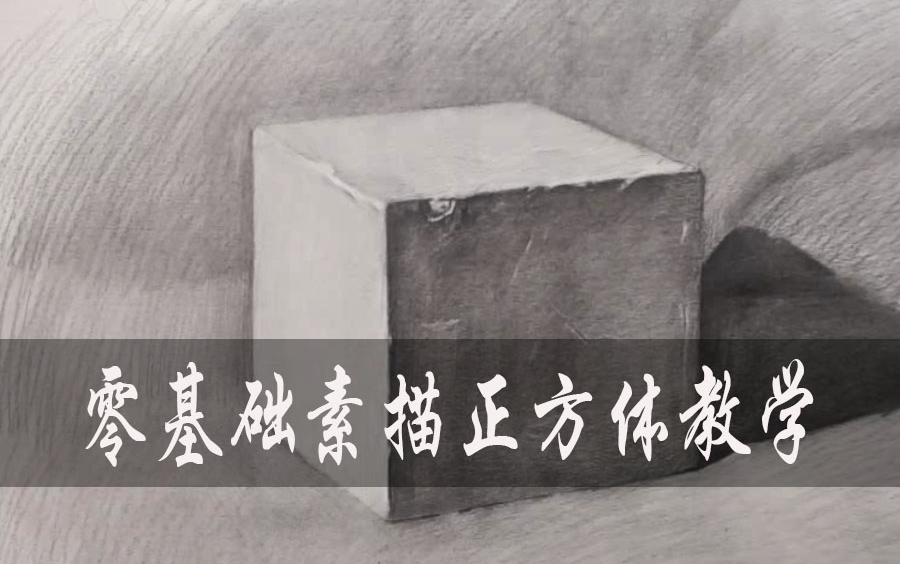 零基础素描正方体教学